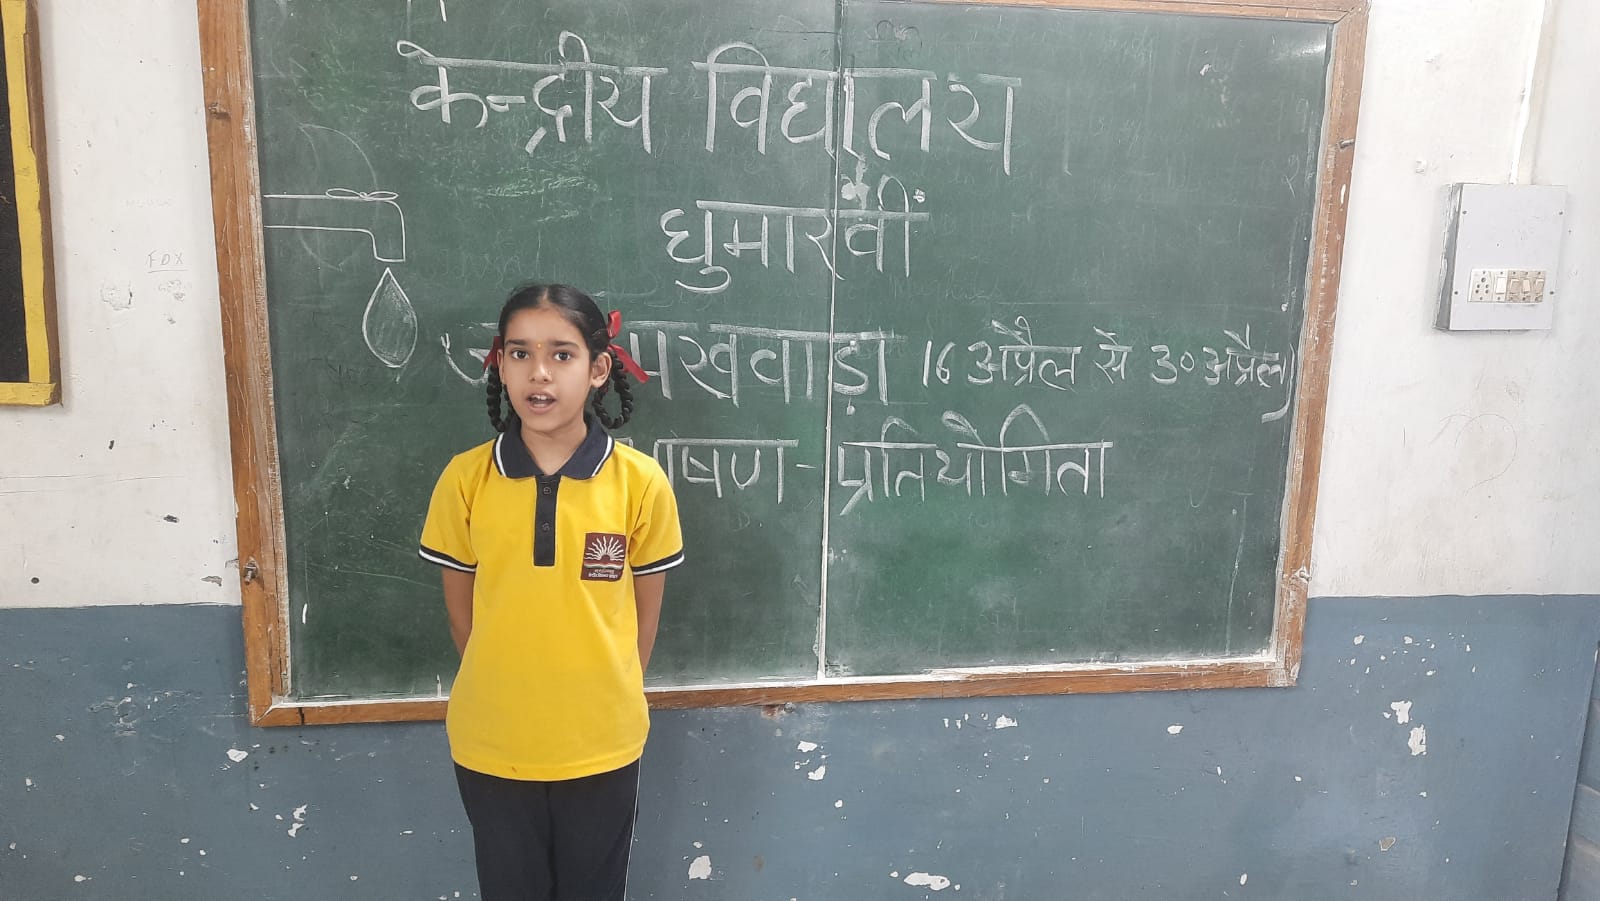 केन्द्रीय विद्यालय
घुमारवीं
पखवाड़ा 16 अप्रैल से 30 अप्रैल
प्रतियोगिता
FDX